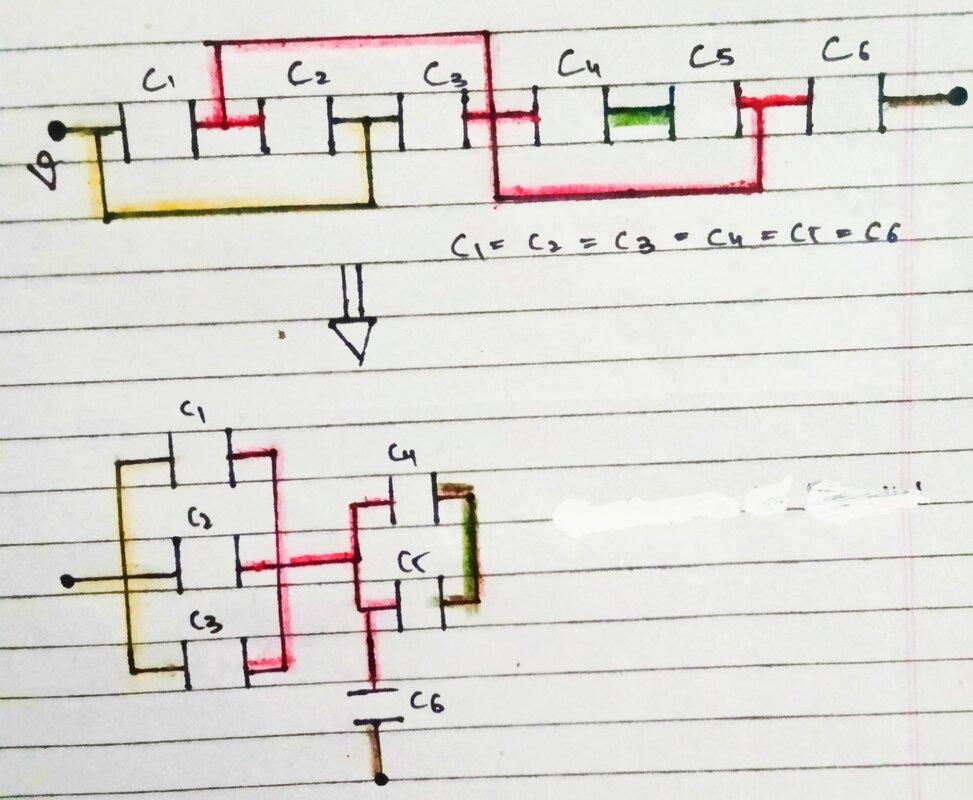 C1 C2 C3 C4 C5 C6
C1 = C2 = C3 = C4 = C5 = C6
C1
C4
C2
C5
C3
C6